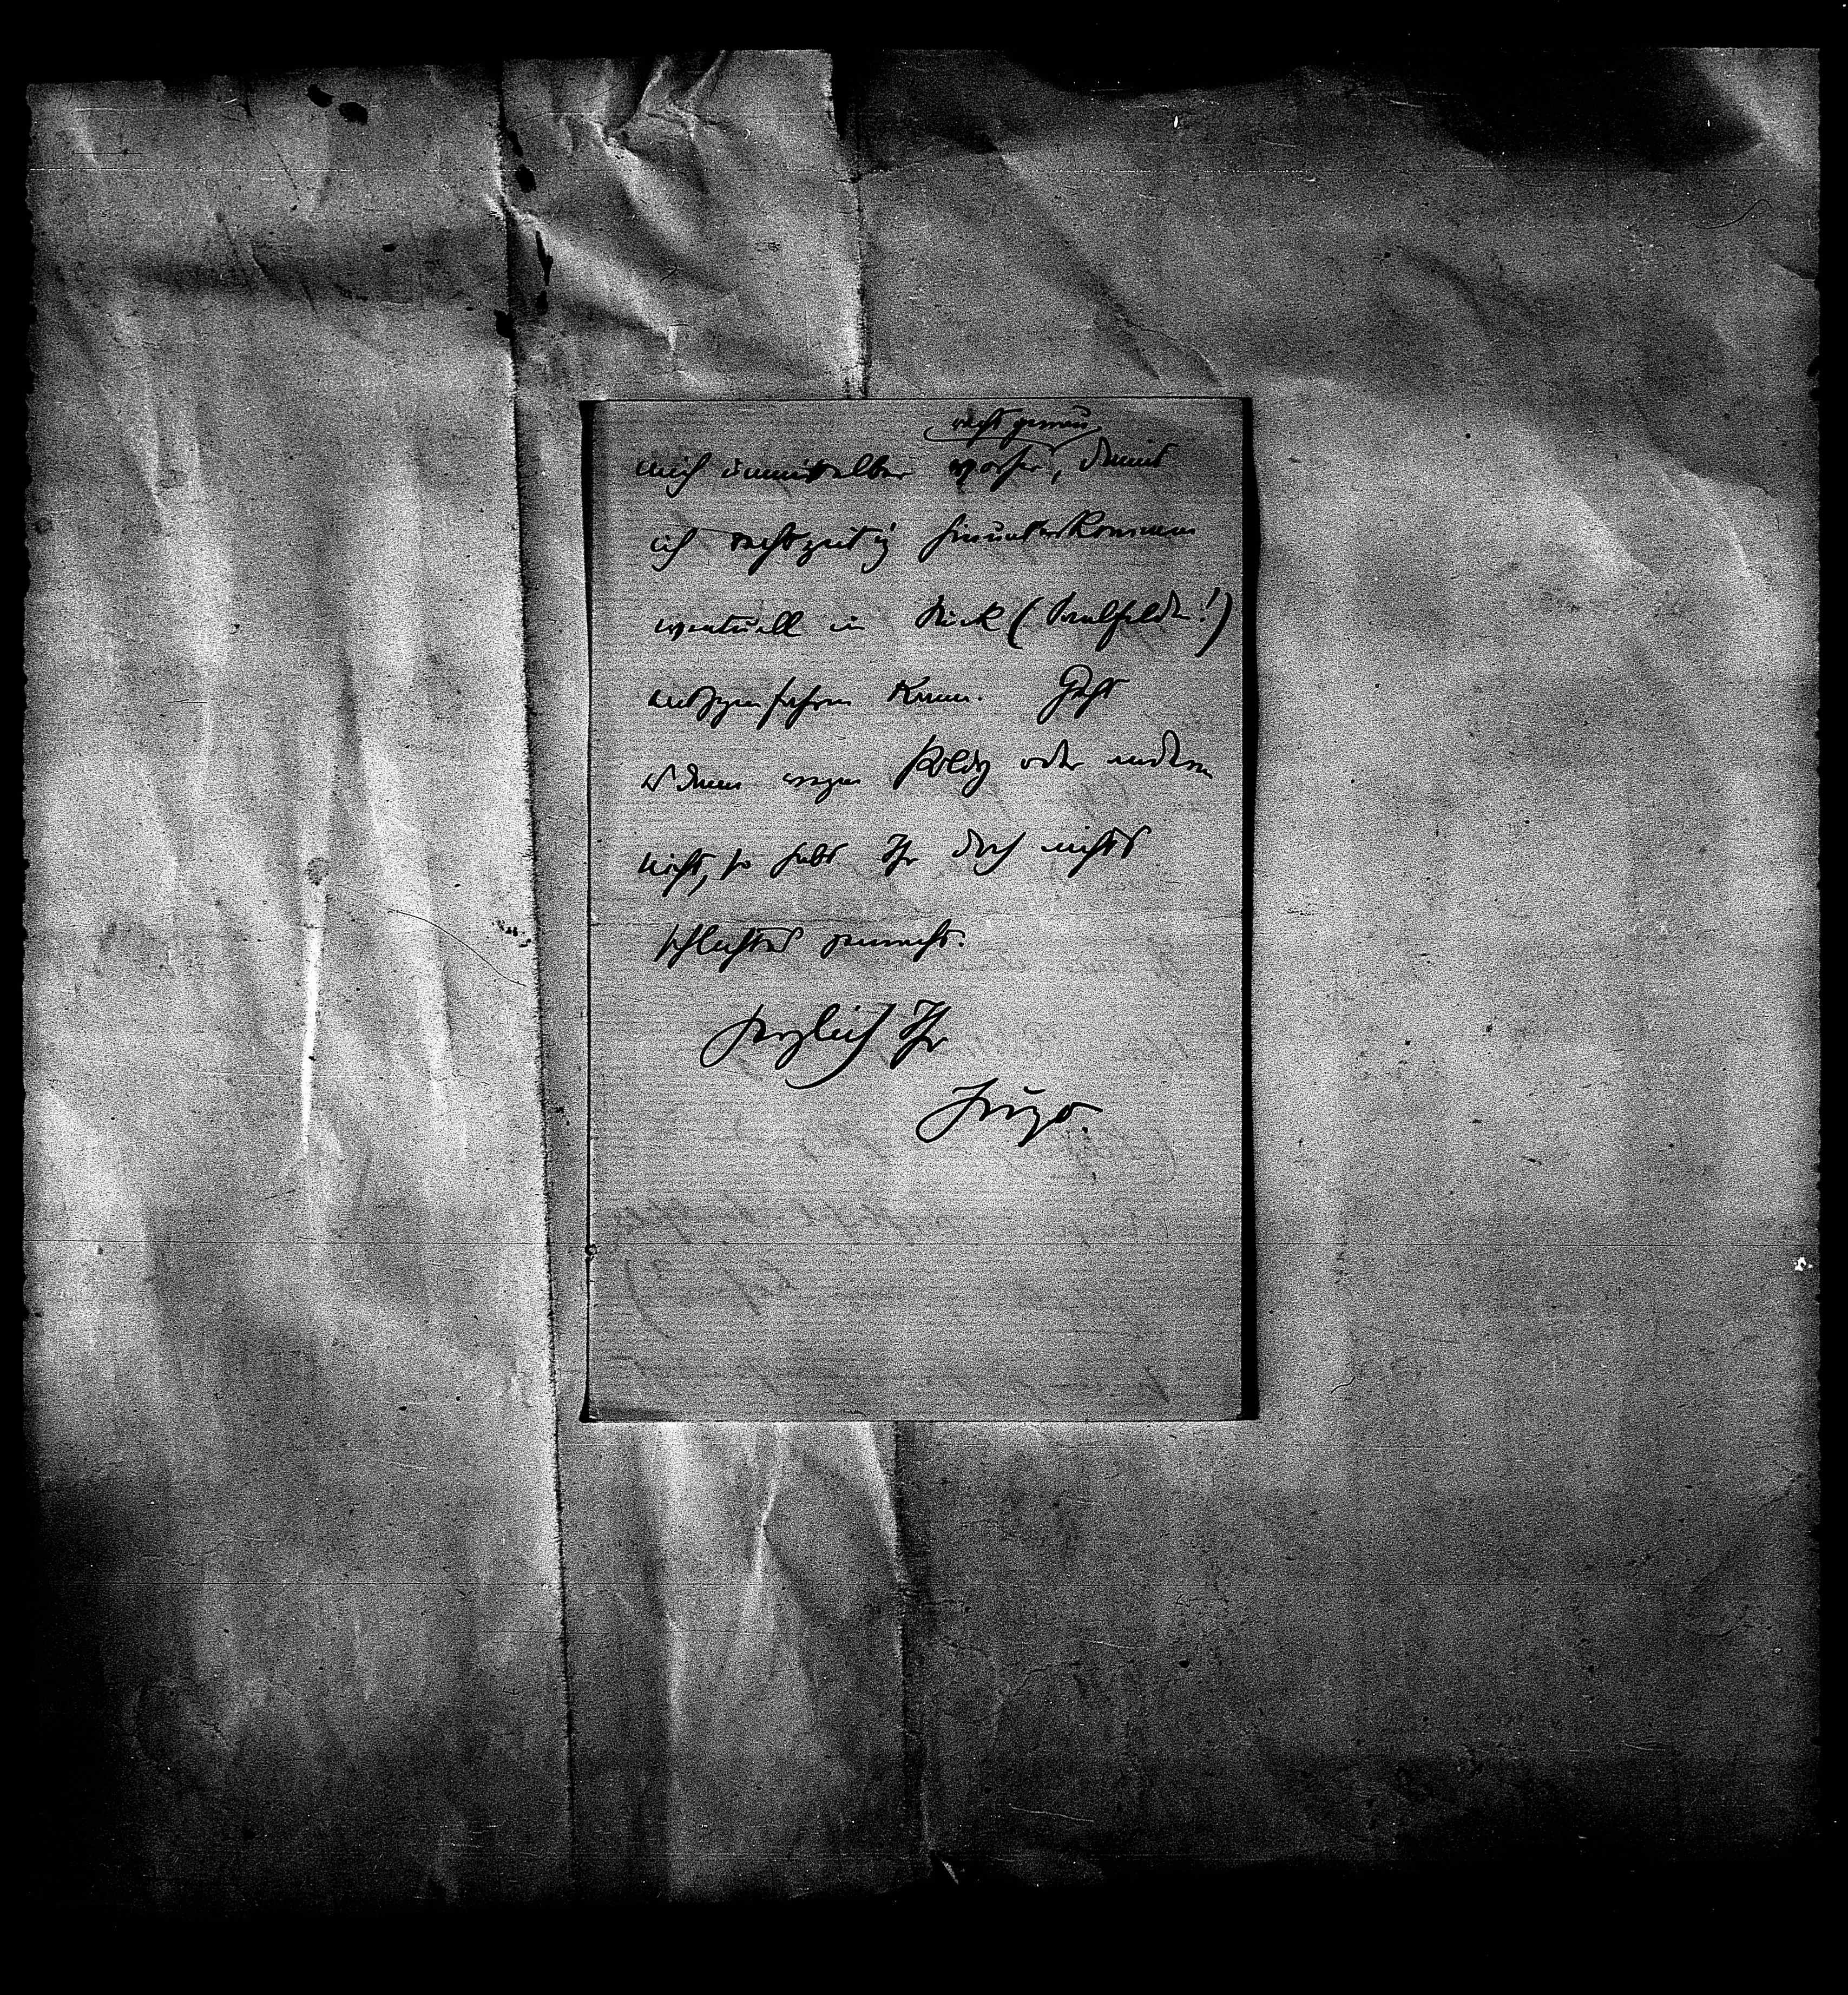 recht genau
mich unmittelbar vorher, damit
ich rechtzeitig hinunterkommen
eventuell in Stück (Saalfelden!)
entgegenfahren kann. Geht
es dann wegen Poldy oder andern
nicht, so habt Ihr doch nichts
schlechtes gemacht.
Herzlich Ihr
Hugo.